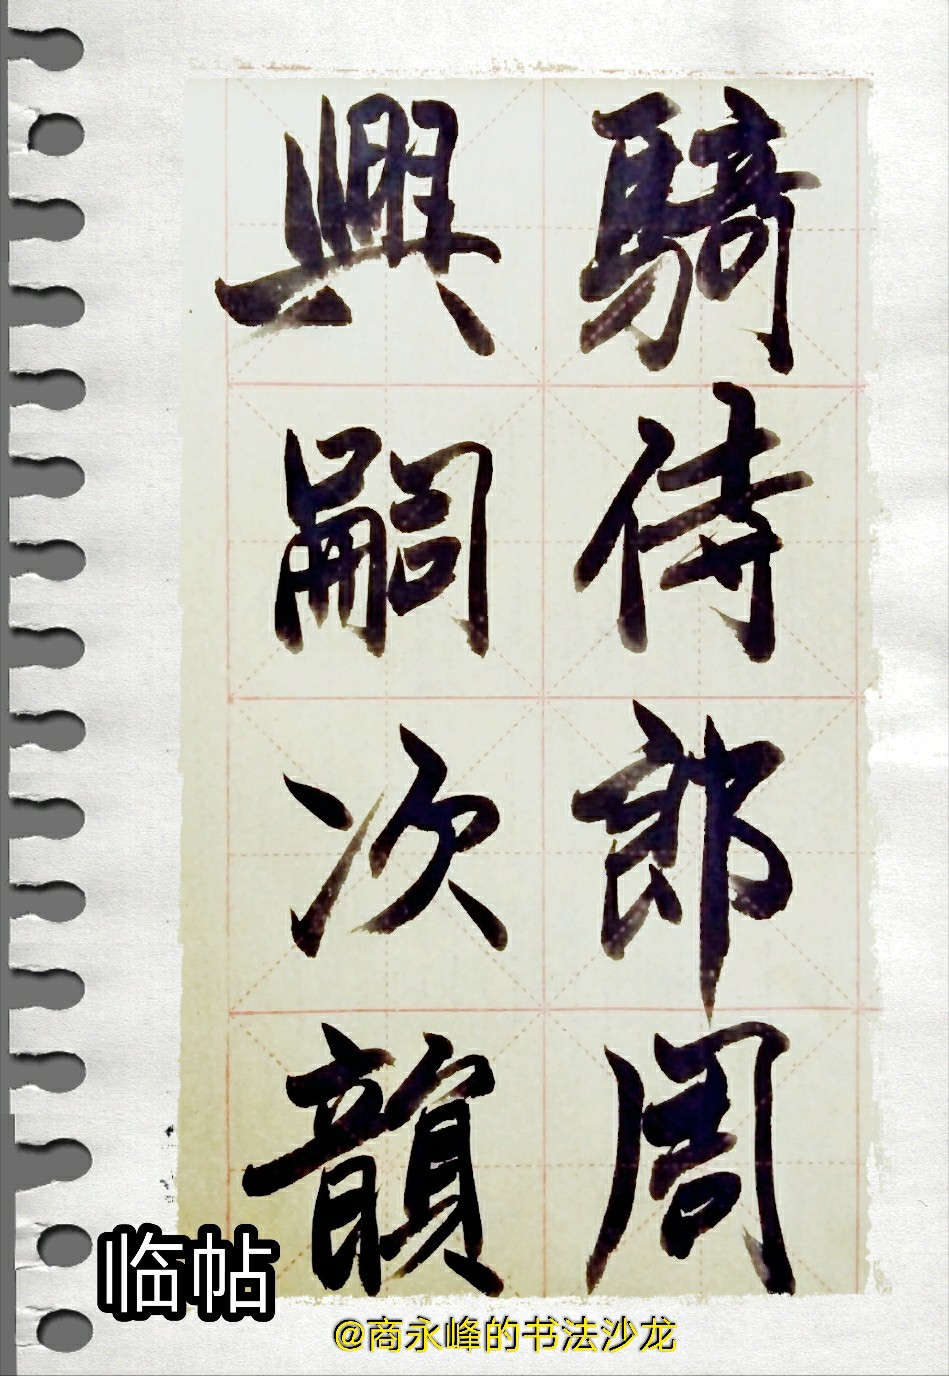 騎侍郎周
興嗣次韻
临帖
@商永峰的书法沙龙